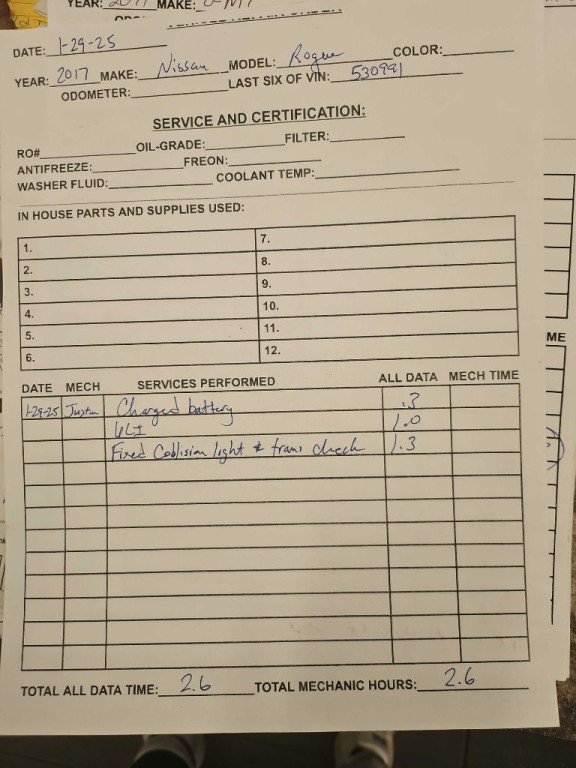 YEAR: 2017 MAKE:
DATE: 1-29-25
YEAR: 2017 MAKE: Nissan MODEL: Rogue COLOR:
ODOMETER: LAST SIX OF VIN: 530991
SERVICE AND CERTIFICATION:
RO# OIL-GRADE: FILTER:
ANTIFREEZE: FREON:
WASHER FLUID: COOLANT TEMP:
IN HOUSE PARTS AND SUPPLIES USED:
1. 7.
2. 8.
3. 9.
4. 10.
5. 11.
6. 12.
ME
DATE MECH SERVICES PERFORMED ALL DATA MECH TIME
1-29-25 Justin Charged battery .3
1.0
Fixed Coblision light & trans check 1.3
TOTAL ALL DATA TIME: 2.6 TOTAL MECHANIC HOURS: 2.6